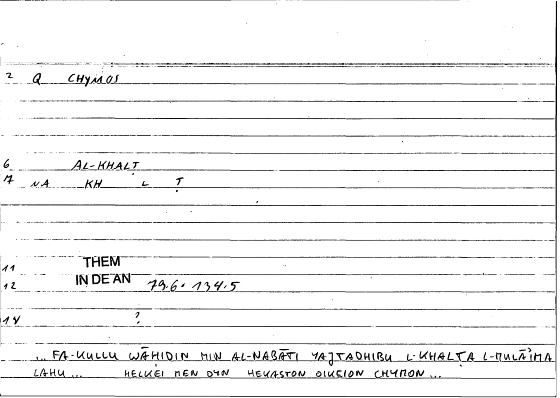 2 Q CHYMOS
6 AL-KHALṬ
17 NA KH L Ṭ
11 THEM
12 IN DE AN 79.6 • 134.5
14 ?
... FA-KULLU WĀḤIDIN MIN AL-NABĀTI YAJTADHIBU L-KHALṬA L-MULĀ'IMA
LAHU ... HELKEI MEN OYN HEKASTON OIKEION CHYMON ...